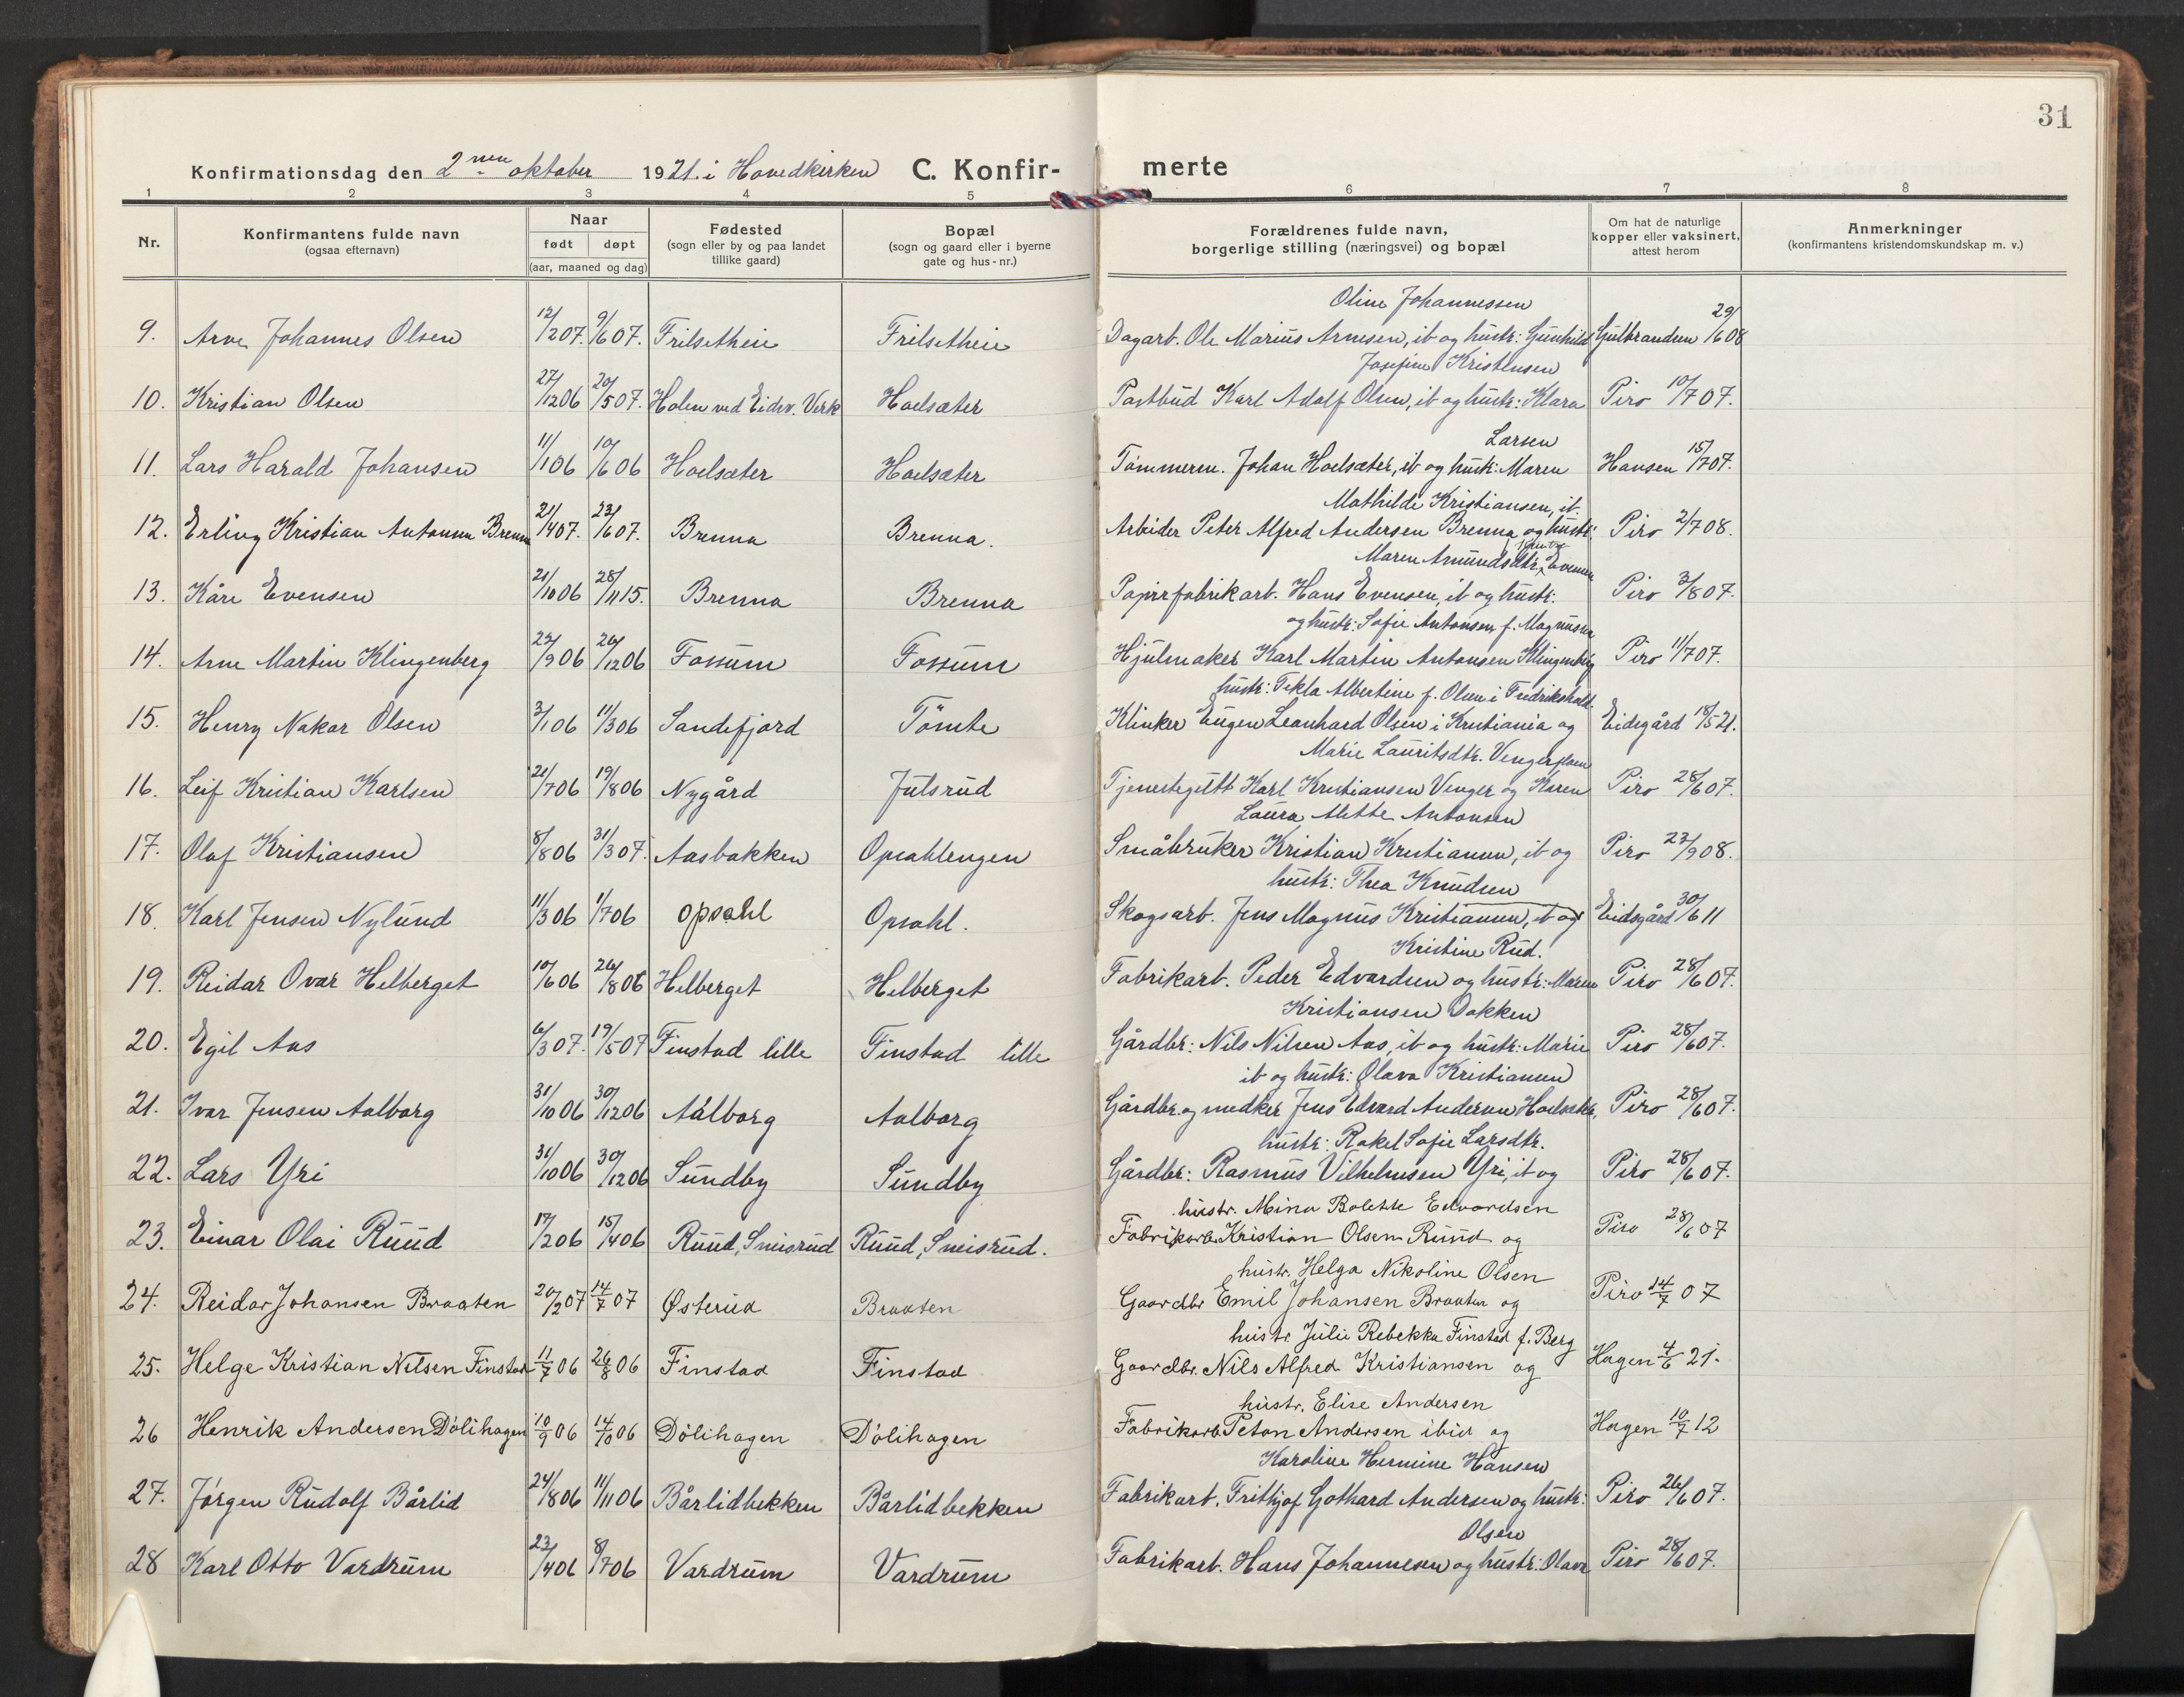 31
Konfirmationsdag den 2nen oktober 1921. i Hovedkirken C. Konfir- merte
1 2 3 4 5 6 7 8
Nr.
Konfirmantens fulde navn
(ogsaa efternavn)
Naar
født døpt
(aar, maaned og dag)
Fødested
(sogn eller by og paa landet
tillike gaard)
Bopæl
(sogn og gaard eller i byerne
gate og hus-nr.)
Forældrenes fulde navn,
borgerlige stilling (næringsvei) og bopæl
Om hat de naturlige
kopper eller vaksinert,
attest herom
Anmerkninger
(konfirmantens kristendomskundskap m. v.)
Oline Johannessen
9. Arve Johannes Olsen 12/2 07. 9/6 07. Frilsetheie Frilsetheie Dagarb. Ole Marius Arnesen, ib og hustr: Gunhild Gulbrandsen 29/6 08
Josefine Kristensen
10. Kristian Olsen 27/12 06 20/5 07. Holen ved Eidsv. Verk Hoelsæter Postbud Karl Adolf Olsen, ib og hustr: Klara Piro 10/7 07.
Larsen
11. Lars Harald Johansen 11/1 06 10/6 06 Hoelsæter Hoelsæter Tømmerm. Johan Hoelsæter, ib og hustr: Maren Hansen 15/7 07.
Mathilde Kristiansen, ib.
12. Erling Kristian Antonsen Brenna 21/4 07. 23/6 07. Brenna Brenna. Arbeider Peter Alfred Andersen Brenna og hustr: Piro 2/7 08.
Maren Amundsdtr. Evensen
13. Kåre Evensen 21/10 06 28/11 15. Brenna Brenna Papirfabrikarb. Hans Evensen, ib og hustr: Piro 3/8 07.
og hustr: Sofie Antonsen f. Magnussen
14. Arne Martin Klingenberg 22/9 06 26/12 06 Fossum Fossum Hjulmaker Karl Martin Antonsen Klingenberg Piro 11/7 07.
hustr: Tekla Albertine f. Olsen i Fredrikshald
15. Henry Nakor Olsen 3/1 06 11/3 06 Sandefjord Tømte Klinker Eugen Leonhard Olsen i Kristiania og Eidsgård 18/5 21.
Marie Lauritsdtr. Vengerflaen
16. Leif Kristian Karlsen 21/7 06 19/8 06 Nygård Julsrud Tjenestegutt Karl Kristiansen Venger og Karen Piro 28/6 07.
Laura Mette Antonsen
17. Olaf Kristiansen 8/8 06 31/3 07. Aasbakken Opsahlengen Småbruker Kristian Kristiansen, ib og Piro 23/9 08.
hustr: Thea Knudsen
18. Karl Jensen Nylund 11/3 06 1/7 06 opsahl Opsahl. Skogsarb. Jens Magnus Kristiansen, ib og Eidsgård 30/6 11
Kristine Rud.
19. Reidar Ovar Helberget 10/6 06 26/8 06 Helberget Helberget Fabrikarb. Peder Edvardsen og hustr: Maren Piro 28/6 07.
Kristiansen Dokken
20. Egil Aas 6/3 07. 19/5 07 Finstad lille Finstad lille Gårdbr: Nils Nilsen Aas, ib og hustr: Marie Piro 28/6 07.
ib og hustr: Olava Kristiansen
21. Ivar Jensen Aalborg 31/10 06 30/12 06 Aalborg Aalborg Gårdbr. og snedker Jens Edvard Andersen Hoelsæter, Piro 28/6 07.
hustr: Rakel Sofie Larsdtr.
22. Lars Yri 31/10 06 30/12 06 Sundby Sundby Gårdbr: Rasmus Vilhelmsen Yri, ib og Piro 28/6 07.
hustr. Mina Bolette Edvardsen
23. Einar Olai Ruud 17/2 06 15/4 06 Ruud, Sneisrud Ruud, Sneisrud. Fabrikarb. Kristian Olsen Ruud og Piro 28/6 07
hustr. Helga Nikoline Olsen
24. Reidar Johansen Braaten 20/2 07 14/7 07 Østerud Braaten Gaardbr Emil Johansen Braaten og Piro 14/7 07
hustr. Julie Rebekka Finstad f. Berg
25. Helge Kristian Nilsen Finstad 11/7 06 26/8 06 Finstad Finstad Gaardbr. Nils Alfred Kristiansen og Hagen 4/6 21.
hustr. Elise Andersen
26 Henrik Andersen Dølihagen 10/9 06 14/10 06 Dølihagen Dølihagen Fabrikarb. Peton Andersen ibid og Hagen 10/7 12
Karoline Hermine Hansen
27. Jørgen Rudolf Bårlid 24/8 06 11/11 06 Bårlidbekken Bårlidbekken Fabrikarb. Frithjof Gothard Andersen og hustr: Piro 26/6 07.
Olsen
28 Karl Otto Vardrum 23/4 06 8/7 06 Vardrum Vardrum Fabrikarb. Hans Johannesen og hustr: Olava Piro 28/6 07.